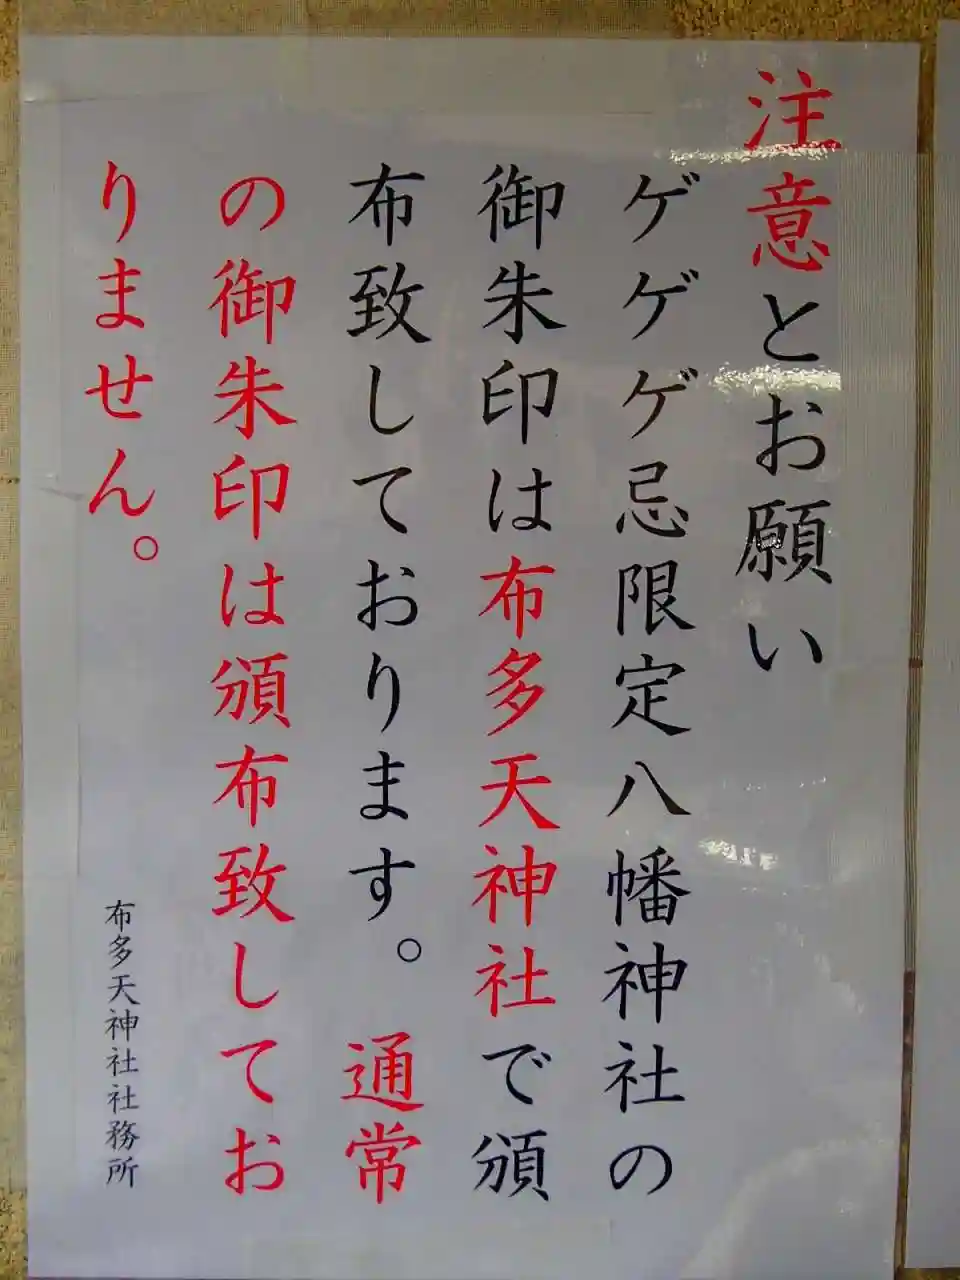 注意とお願い
ゲゲゲ忌限定八幡神社の
御朱印は布多天神社で頒
布致しております。　通常
の御朱印は頒布致してお
りません。
布多天神社社務所